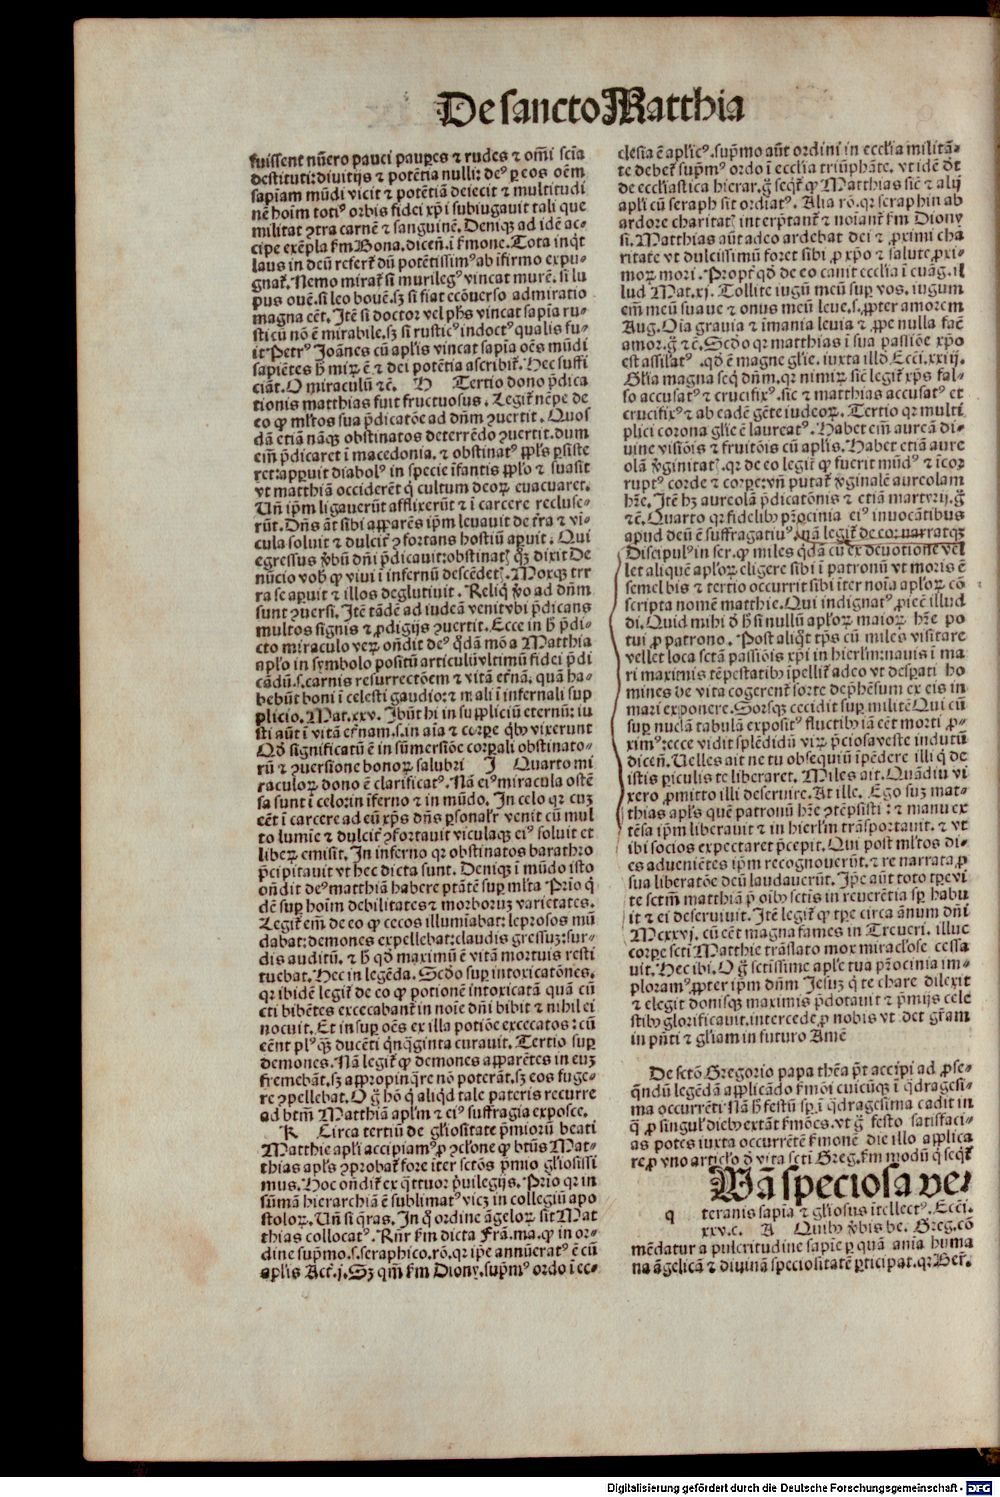 De sancto Matthia
fuissent nūero pauci paupes ⁊ rudes ⁊ om̄i scīa
destituti: diuitijs ⁊ potētia nulli: deꝰ ꝑ eos oēm
sapiam mūdi vicit ⁊ potētiā deiecit ⁊ multitudi
nē hoīm totiꝰ orbis fidei xp̄i subiugauit tali que
militat ꝯtra carnē ⁊ sanguinē. Deniqꝫ ad idē ac-
cipe exēpla ẜm Bona. dicen̄. ī ẜmone. Tota inq̄t
laus in deū refert᷑ dū potētissimꝰ ab īfirmo expu-
gnat᷑. Nemo mirat᷑ si murilegꝰ vincat murē. si lu
pus ouē. si leo bouē. sꝫ si fiat ecōuerso admiratio
magna eēt. Itē si doctor vel ph̄s vincat sapia ru-
sticū nō ē mirabile. sꝫ si rusticꝰ indoctꝰ qualis fu-
it Petrꝰ Joānes cū apl̄is vincat sapīa oēs mūdi
sapiētes h̄ mirꝝ ē ⁊ dei potētia ascribit᷑. Hec suffi
ciāt. O miraculū ⁊c̄. H Tertio dono p̄dica
tionis matthias fuit fructuosus. Legit᷑ nēpe de
eo ꝙ ml̄tos sua p̄dicatōe ad dn̄m ꝯuertit. Quos
dā etiā nāqꝫ obstinatos deterrēdo ꝯuertit. dum
em̄ p̄dicaret ī macedonia. ⁊ obstinatꝰ ppl̄s ꝑsiste
ret: apparuit diabolꝰ in specie īfantis ppl̄o ⁊ suasit
vt matthiā occiderēt ꝗ cultum deoꝝ euacuaret.
Un̄ ip̄m ligauerūt afflixerūt ⁊ ī carcere recluse-
rūt. Dn̄s āt sibi apparēs ip̄m leuauit de t̄ra ⁊ vi-
cula soluit ⁊ dulcit᷑ ꝯfortans hostiū aꝑuit. Qui
egressus v̄bū dn̄i p̄dicauit: obstinatꝭ qꝫ dixit De
nūcio vob̄ ꝙ viui ī infernū descēdetꝭ. Moxqꝫ ter
ra se aꝑuit ⁊ illos deglutiuit. Reliq̄ v̄o ad dn̄m
sunt ꝯuersi. Itē tādē ad iudeā venit vbi p̄dicans
multos signis ⁊ ꝓdigijs ꝯuertit. Ecce in h̄ p̄di-
cto miraculo veꝝ on̄dit deꝰ q̄dā mō a Matthia
apl̄o in symbolo positū articulū vltimū fidei p̄di
cādū. s. carnis resurrectōem ⁊ vitā et̄nā. quā ha-
bebūt boni ī celesti gaudio: ⁊ mali ī infernali sup
plicio. Mat. xxv. Jbūt hi in suppliciū eternū: iu
sti aūt ī vitā et̄nam. s. in aīa ⁊ corꝑe qͥbꝰ vixerunt
Qd̄ significatū ē in sūmersiōe corꝑali obstinato-
rū ⁊ ꝯuersione bonoꝝ salubri J Quarto mi
raculoꝝ dono ē clarificatꝰ. Nā eiꝰ miracula ostē
sa sunt ī celo: in īferno ⁊ in mūdo. In celo qꝛ cuꝫ
eēt ī carcere ad eū xp̄s dn̄s ꝑsonalr̄ venit cū mul
to lumīe ⁊ dulcit᷑ ꝯfortauit viculaqꝫ eiꝰ soluit et
liberꝝ emisit. In inferno qꝛ obstinatos barathro
p̄cipitauit vt hec dicta sunt. Deniqꝫ ī mūdo isto
on̄dit deꝰ matthiā habere ptātē suꝑ ml̄ta Prīo q̄
dē suꝑ hoīm debilitates ⁊ morboꝝ varietates.
Legit᷑ em̄ de eo ꝙ cecos illumīabat: leprosos mū
dabat: demones expellebat: claudis gressuꝫ: sur-
dis auditū. ⁊ h̄ qd̄ maximū ē vitā mortuis resti
tuebat. Hec in legēda. Scd̄o suꝑ intoxicatōnes.
qꝛ ibidē legit᷑ de eo ꝙ potionē intoxicatā quā cū
cti bibētes excecabant᷑ in noīe dn̄i bibit ⁊ nihil ei
nocuit. Et insuꝑ oēs ex illa potiōe excecatos: cū
eēnt plꝰ qꝫ ducēti qͥnq̄ginta curauit. Tertio suꝑ
demones. Nā legit᷑ ꝙ demones apparētes in euꝫ
fremebāt. sꝫ appropinq̄re nō poterāt. sꝫ eos fuge-
re ꝯpellebat. O g̊ hō ꝗ aliqd̄ tale pateris recurre
ad btm̄ Matthiā apl̄m ⁊ eiꝰ suffragia exposce.
K Circa tertiū de gl̄iositate p̄mioruꝫ beati
Matthie apl̄i accipiamꝰ ꝓ ꝯcl̄one ꝙ btūs Mat-
thias apl̄s ꝯprobat᷑ fore īter sctōs p̄mio gl̄iosissi
mus. Hoc on̄dit᷑ ex q̄ttuor p̄uilegijs. Prīo qꝛ in
sūmā hierarchiā ē sublimatꝰ vicꝫ in collegiū apo
stoloꝝ. Un̄ si q̄ras. In q̄ ordine āgeloꝝ sit Mat
thias collocatꝰ. Rn̄r ẜm dicta Frā. ma. ꝙ in or-
dine sup̄mo. s. seraphico. rō. qꝛ ip̄e annūeratꝰ ē cū
apl̄is Act᷑. j. Sꝫ qm̄ ẜm Diony. sup̄mꝰ ordo ī ec-
clesia ē aplicꝰ. sup̄mo aūt ordini in eccl̄ia militā-
te debet᷑ sup̄mꝰ ordo ī eccl̄ia triūphāte. vt idē dt̄
de ecclīastica hierar. g̊ seqt᷑ ꝙ Matthias sic̄ ⁊ alij
apl̄i cū seraph sit ordīatꝰ. Alia rō. qꝛ seraphin ab
ardore charitatꝭ interp̄tant᷑ ⁊ noīant᷑ ẜm Diony
si. Matthias aūt adeo ardebat dei ⁊ ꝓximi cha
ritate vt dulcissimū foret sibi ꝓ xp̄o ⁊ salute ꝓxi-
moꝝ mori. Propt᷑ qd̄ de eo canit eccl̄ia ī euāg. il
lud Mat. xj. Tollite iugū meū suꝑ vos. iugum
em̄ meū suaue ⁊ onus meū leue. s. ꝓpter amorem
Aug. Oīa grauia ⁊ īmania leuia ⁊ ꝓpe nulla faē
amor. g̊ ⁊c̄. Scd̄o qꝛ matthias ī sua passiōe xp̄o
est assilatꝰ. qd̄ ē magne gl̄ie. iuxta illd̄ Eccī. xxiij.
Gl̄ia magna seq̄ dn̄m. qꝛ nimiꝝ sic̄ legit᷑ xp̄s fal-
so accusatꝰ ⁊ crucifixꝰ. sic ⁊ matthias accusatꝰ et
crucifixꝰ ⁊ ab eadē gēte iudeoꝝ. Tertio qꝛ multi
plici corona gl̄ie ē laureatꝰ. Habet em̄ aureā di-
uine visiōis ⁊ fruitōis cū apl̄is. Habet etiā aure
olā v̄ginitatꝭ. qꝛ de eo legit᷑ ꝙ fuerit mūdꝰ ⁊ īcor
ruptꝰ corde ⁊ corꝑe: vn̄ putat᷑ v̄ginalē aureolam
hr̄e. Itē hꝫ aureolā p̄dicatōnis ⁊ etiā martyrij. g̊
⁊c̄. Quarto qꝛ fidelibꝰ p̄rocinia eiꝰ inuocātibus
apud deū ē suffragatiuꝰ. Nā legit᷑ de eo: narratqꝫ
Discipulꝰ in ser. ꝙ miles q̄dā cū ex deuotione vel
let aliquē apl̄oꝝ eligere sibi ī patronū vt moris ē
semel bis ⁊ tertio occurrit sibi īter noīa apl̄oꝝ cō
scripta nomē matthie. Qui indignatꝰ ꝓiecit illud
di. Quid mihi d̄ h̄ si nullū apl̄oꝝ maioꝝ hr̄e po
tui ꝓ patrono. Post aliqt᷑ tp̄s cū miles visitare
vellet loca sctā passiōis xp̄i in hierl̄m: nauis ī ma
ri maximis tēpestatibꝰ īpellit᷑ adeo vt desꝑati ho
mines de vita cogerent᷑ sorte dep̄hēsum ex eis in
mari exponere. Sorsqꝫ cecidit suꝑ militē Qui cū
suꝑ nudā tabulā expositꝰ fluctibꝰ iā eēt morti ꝓ-
ximꝰ: ecce vidit splēdidū viꝝ p̄ciosa veste indutū
dicen̄. Uelles ait ne tu obsequiū īpēdere illi ꝗ de
istis ꝑiculis te liberaret. Miles ait. Quādiu vi
xero ꝓmitto illi deseruire. At ille. Ego suꝫ mat-
thias apl̄s quē patronū hr̄e ꝯtēpsisti: ⁊ manu ex
tēsa ip̄m liberauit ⁊ in hierl̄m trāsportauit. ⁊ vt
ibi socios expectaret p̄cepit. Qui post ml̄tos di-
es aduenīetes ip̄m recognouerūt. ⁊ re narrata ꝓ
sua liberatōe deū laudauerūt. Ip̄e aūt toto tꝑe vi
te sctm̄ matthiā p̄ oībꝰ sctis in reuerētia sꝑ habu
it ⁊ ei deseruiuit. Itē legit᷑ ꝙ tꝑe circa ānum dn̄i
Mcxxvj. cū eēt magna fames in Treueri. illuc
corꝑe scti Matthie trāslato mox miracl̄ose cessa
uit. Hec ibi. O g̊ sctīssime apl̄e tua p̄rocinia im-
ploramꝰ ꝓpter ip̄m dn̄m Jesuꝫ ꝗ te chare dilexit
⁊ elegit donisqꝫ maximis p̄dotauit ⁊ p̄mijs cele
stibꝰ glorificauit. intercede ꝓ nobis vt det gr̄am
in pn̄ti ⁊ gl̄iam in futuro Amē
De sctō Gregorio papa thēa p̄t accipi ad ꝓse-
q̄ndū legēdā applicādo ẜmōi cuicūqꝫ ī q̄dragesi-
ma occurrēti Nā h̄ festū sꝑ ī q̄dragesima cadit in
q̄ ꝓ singul᷑ diebꝰ extāt ẜmōes. vt g̊ festo satisfaci-
as potes iuxta occurrētē ẜmonē die illo applica
re ꝓ vno articl̄o d̄ vita scti Greg. ẜm modū ꝗ seqt᷑
Uā speciosa ve-
q teranis sapia ⁊ gl̄iosus ītellectꝰ. Eccī.
xxv. c. A Quibꝰ v̄bis be. Greg. cō
mēdatur a pulcritudine sapīe ꝑ quā anīa huma
na āgelicā ⁊ diuinā speciositatē ꝑticipat. qꝛ Ber̄.
Digitalisierung gefördert durch die Deutsche Forschungsgemeinschaft - DFG